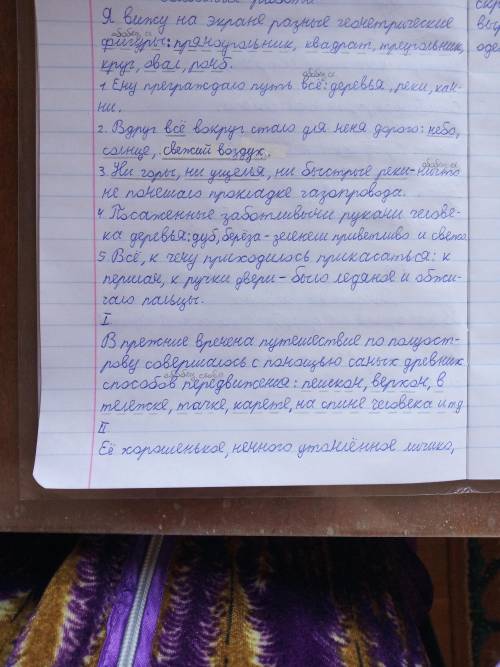 работы
Я вижу на экране разные геометрические
обобщ. сл.
фигуры: прямоугольник, квадрат, треугольник,
круг, овал, ромб.
обобщ. сл.
1. Ему преграждало путь всё: деревья, реки, кам-
ни.
2. Вдруг всё вокруг стало для меня дорого: небо,
солнце, свежий воздух.
обобщ. сл.
3. Ни горы, ни ущелья, ни быстрые реки-ничто
не помешало прокладке газопровода.
4. Посаженные заботливыми руками челове-
ка деревья: дуб, берёза-зеленели приветливо и свежо
5. Всё, к чему приходилось прикасаться: к
перилам, к ручки двери-было ледяное и обжи-
гало пальцы.
I
В прежние времена путешествие по полуост-
рову совершалось с помощью самых древних
обобщ. слово
способов передвижения: пешком, верхом, в
тележке, тачке, карете, на спине человека и тд
II
Её хорошенькое, немного утомлённое личико,